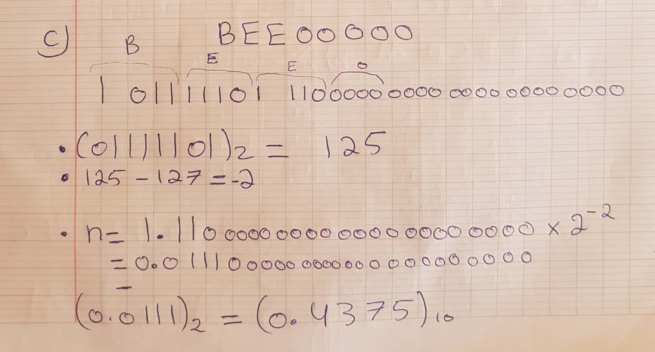 c) BEE00000
B E E 0
1 0111110 1 11000000000 0000 0000 0000 0000
• (01111101)₂ = 125
• 125 - 127 = -2
• n = 1.11000000000000000000000 × 2⁻²
= 0.0111000000000000000000000
=
(0.0111)₂ = (0.4375)₁₀